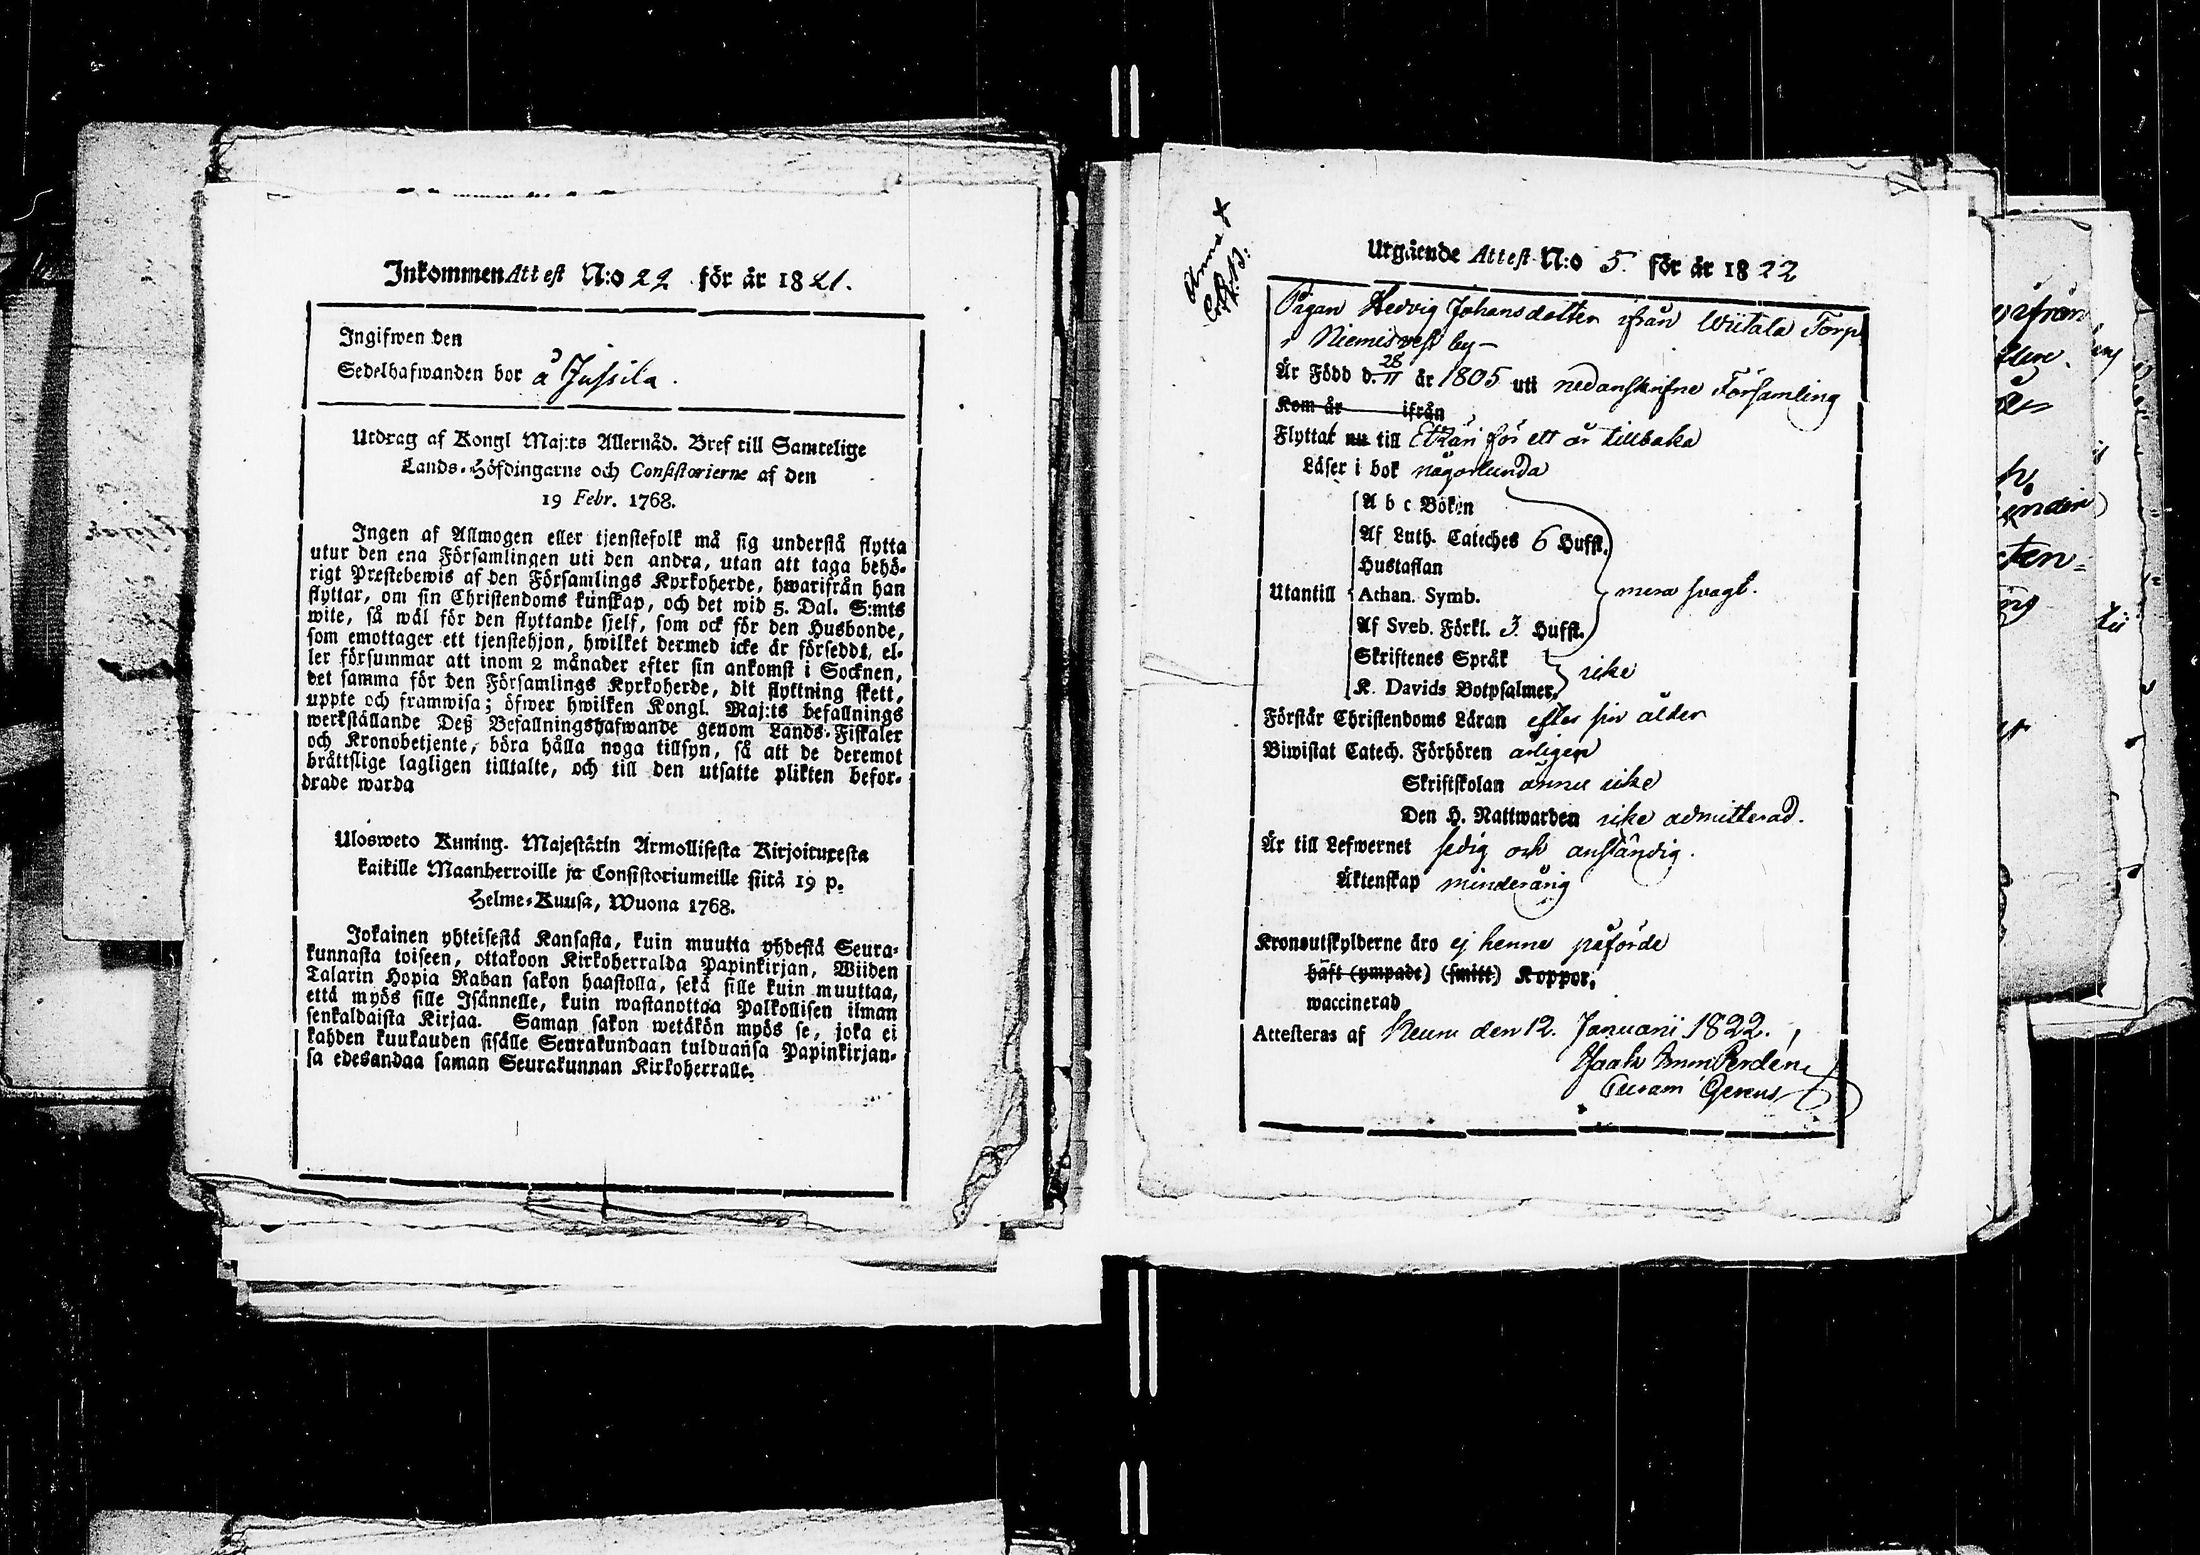 Inkommen Attest N:o 22 för år 1821.
Ingifwen den
Sedelhafwanden bor å Jussila.
Utdrag af Kongl Maj:ts Allernåd. Bref till Samtelige
Lands-Höfdingarne och Consistorierne af den
19 Febr. 1768.
Ingen af Allmogen eller tjenstefolk må sig understå flytta
utur den ena Församlingen uti den andra, utan att taga behö-
rigt Prestebewis af den Församlings Kyrkoherde, hwarifrån han
flyttar, om sin Christendoms kunskap, och det wid 5. Dal. S:mts
wite, så wäl för den flyttande sjelf, som ock för den Husbonde,
som emottager ett tjenstehjon, hwilket dermed icke är försedt, el-
ler försummar att inom 2 månader efter sin ankomst i Socknen,
det samma för den Församlings Kyrkoherde, dit flyttning skett,
uppte och framwisa; öfwer hwilken Kongl. Maj:ts befallnings
werkställande Deß Befallningshafwande genom Lands-Fiskaler
och Kronobetjente, böra hålla noga tillsyn, så att de deremot
bråttslige lagligen tilltalte, och till den utsatte plikten befor-
drade warda
Ulosweto Kuning. Majestätin Armollisesta Kirjoituxesta
kaikille Maanherroille ja Consistoriumeille siitä 19 p.
Helme-Kuusa, Wuona 1768.
Jokainen yhteisestä Kansasta, kuin muutta yhdestä Seura-
kunnasta toiseen, ottakoon Kirkoherralda Papinkirjan, Wiiden
Talarin Hopia Rahan sakon haastolla, sekä sille kuin muuttaa,
että myös sille Isännelle, kuin wastanottaa Palkollisen ilman
senkaldaista Kirjaa. Saman sakon wetäkön myös se, joka ei
kahden kuukauden sisälle Seurakundaan tulduansa Papinkirjan-
sa edesandaa saman Seurakunnan Kirkoherralle.
Utgående Attest N:o 5. för år 1822
Pigan Hedvig Johansdotter ifrån Wiitala Torp
i Niemisvesi by-
Är Född d. 28/11 år 1805 uti nedanskrifne Församling
Kom år ifrån
Flyttat nu till Etzäri för ett år tillbaka
Läser i bok någorlunda
A b c Boken
Af Luth. Cateches 6 Hufst.
Hustaflan
Utantill Athan. Symb. mera svagt.
Af Sveb. Förkl. 3. Hufst.
Skriftenes Språk
K. Davids Botpsalmer, icke
Förstår Christendoms Läran efter sin ålder
Biwistat Catech. Förhören årligen
Skriftskolan ännu icke
Den H. Nattwarden icke admitterad.
Är till Lefwernet sedig och anständig.
Äktenskap minderårig
Kronoutskylderne äro ej henne påförde
häft (ympade) (smitt) Koppor,
waccinerad
Attesteras af Keuru den 12. Januarii 1822.
Isaak Imm Perdén,
Curam Gerens